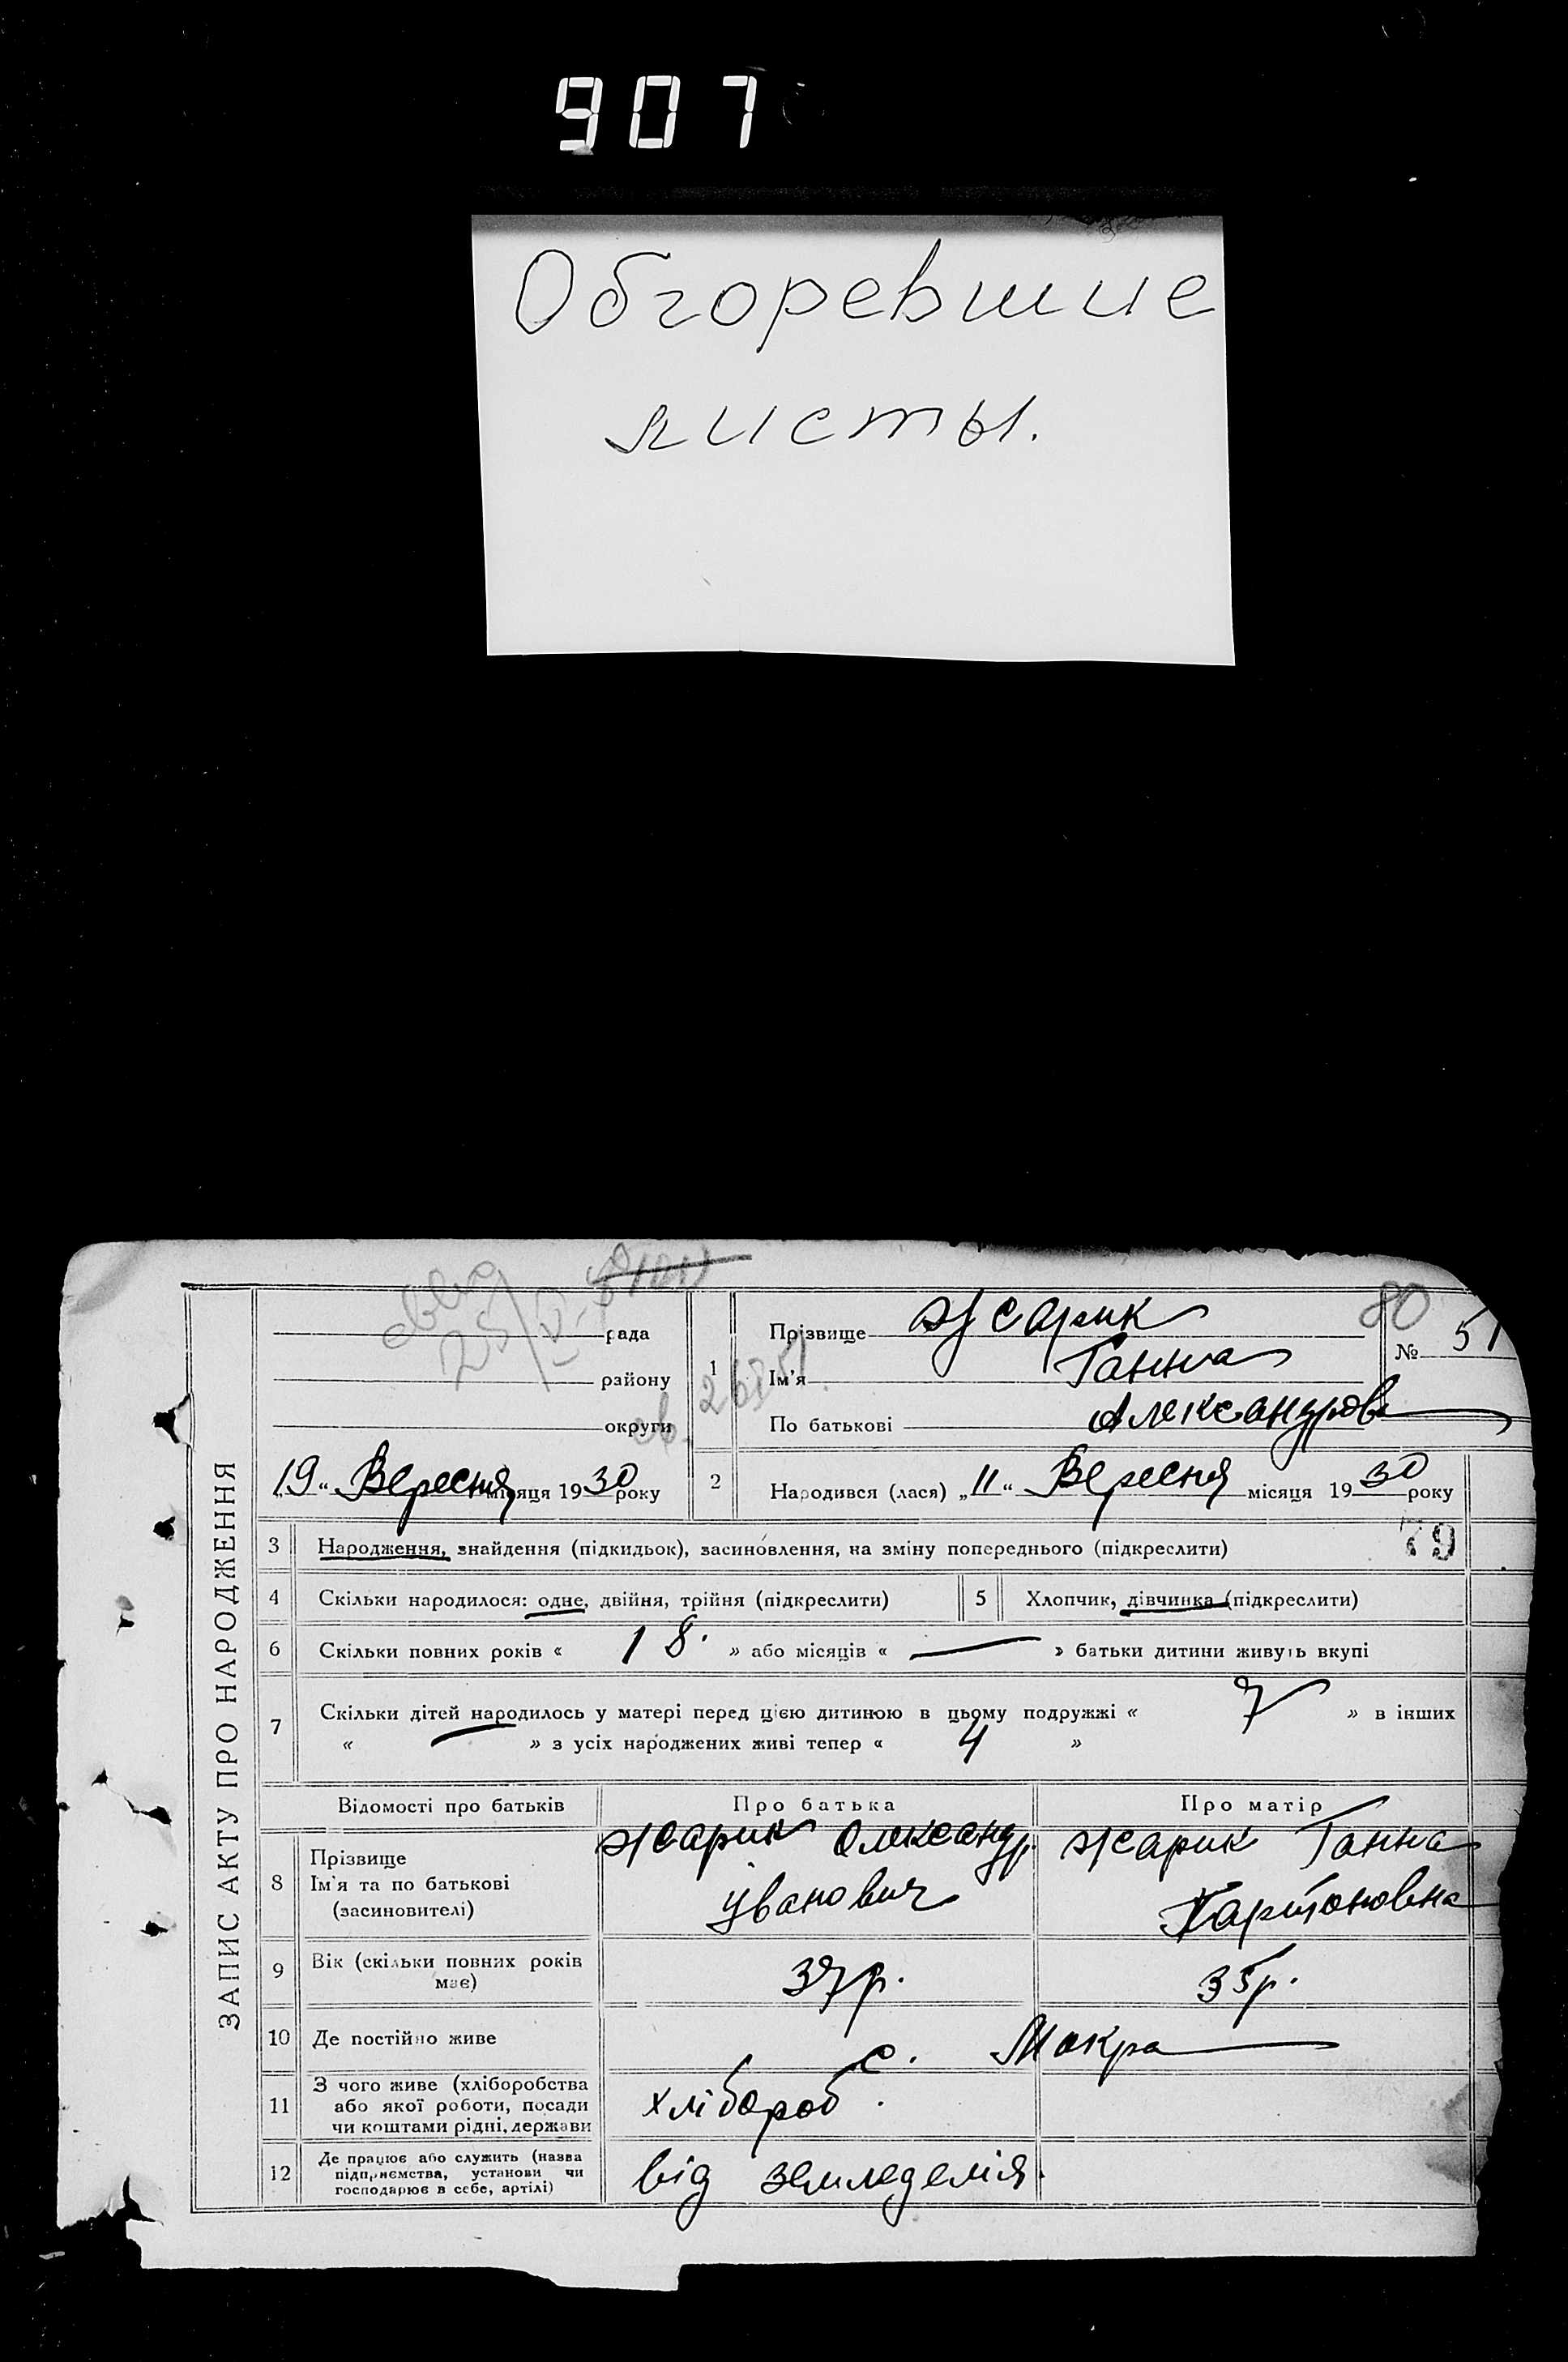 907
Обгоревшие
листы.
ЗАПИС АКТУ ПРО НАРОДЖЕННЯ
рада
району
округи
„19“ Вересня місяця 1930 року
1
Прізвище Жарик
Ім'я Ганна
По батькові Александрова
80
№ 51
2 Народився (лася) „11“ Вересня місяця 1930 року
3 Народження, знайдення (підкидьок), засиновлення, на зміну попереднього (підкреслити)
79
4 Скільки народилося: одне, двійня, трійня (підкреслити) 5 Хлопчик, дівчинка (підкреслити)
6 Скільки повних років « 18. » або місяців « — » батьки дитини живуть вкупі
7 Скільки дітей народилось у матері перед цією дитиною в цьому подружжі « 7 » в інших
« — » з усіх народжених живі тепер « 4 »
Відомості про батьків Про батька Про матір
8 Прізвище
Ім'я та по батькові
(засиновителі)
Жарик Олександр
Иванович
Жарик Ганна
Харитоновна
9 Вік (скільки повних років
має)
37 р. 35 р.
10 Де постійно живе с. Мокра
11 З чого живе (хліборобства
або якої роботи, посади
чи коштами рідні, держави
хлібороб.
12 Де працює або служить (назва
підприємства, установи чи
господарює в себе, артілі)
від земледелія.